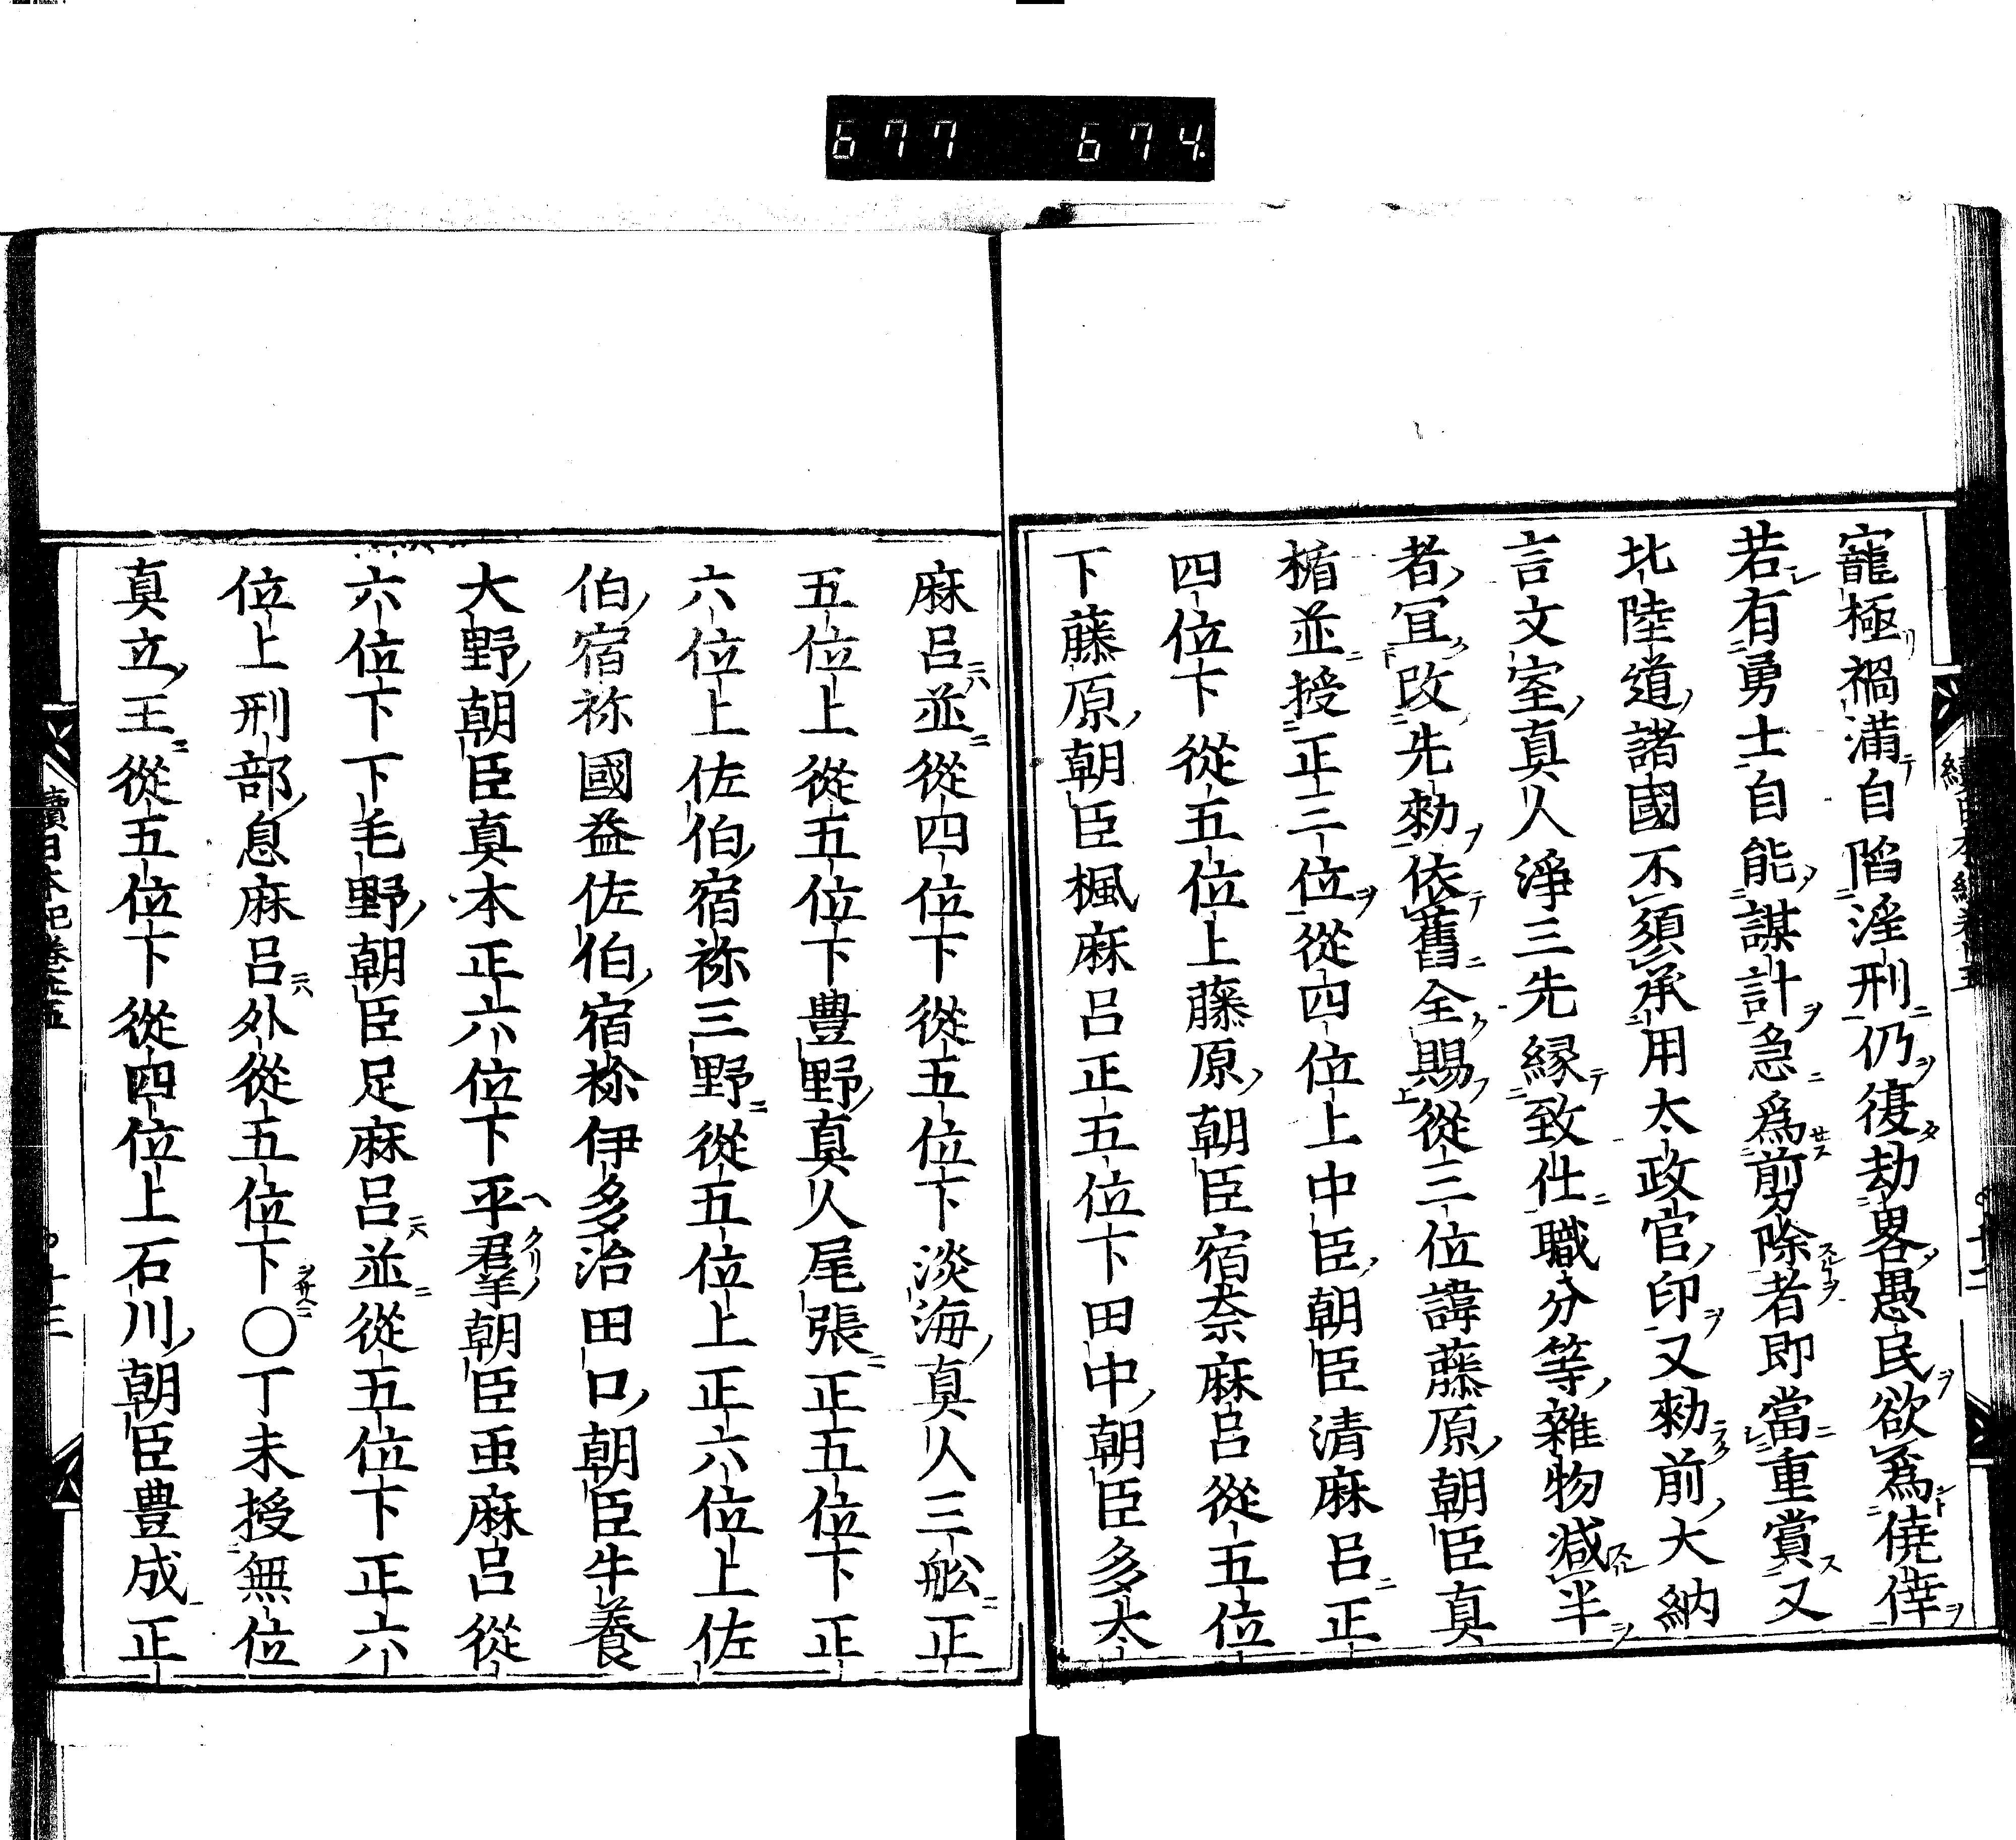 677 674.
寵極禍満自陷淫刑仍復劫畧愚民欲爲僥倖
若有勇士自能謀計急爲剪除者即當重賞又
北陸道諸國不須承用太政官印又勅前大納
言文室真人淨三先縁致仕職分等雜物减半
者冝改先勅依舊全賜從三位諱藤原朝臣真
楯並授正三位從四位上中臣朝臣清麻呂正
四位下從五位上藤原朝臣宿奈麻呂從五位
下藤原朝臣楓麻呂正五位下田中朝臣多太
麻呂並從四位下從五位下淡海真人三舩正
五位上從五位下豊野真人尾張正五位下正
六位上佐伯宿祢三野從五位上正六位上佐
伯宿祢國益佐伯宿祢伊多治田口朝臣牛養
大野朝臣真本正六位下平羣朝臣虫麻呂從
六位下下毛野朝臣足麻呂並從五位下正六
位上刑部息麻呂外從五位下○丁未授無位
真立王從五位下從四位上石川朝臣豊成正
續日本紀卷廿五